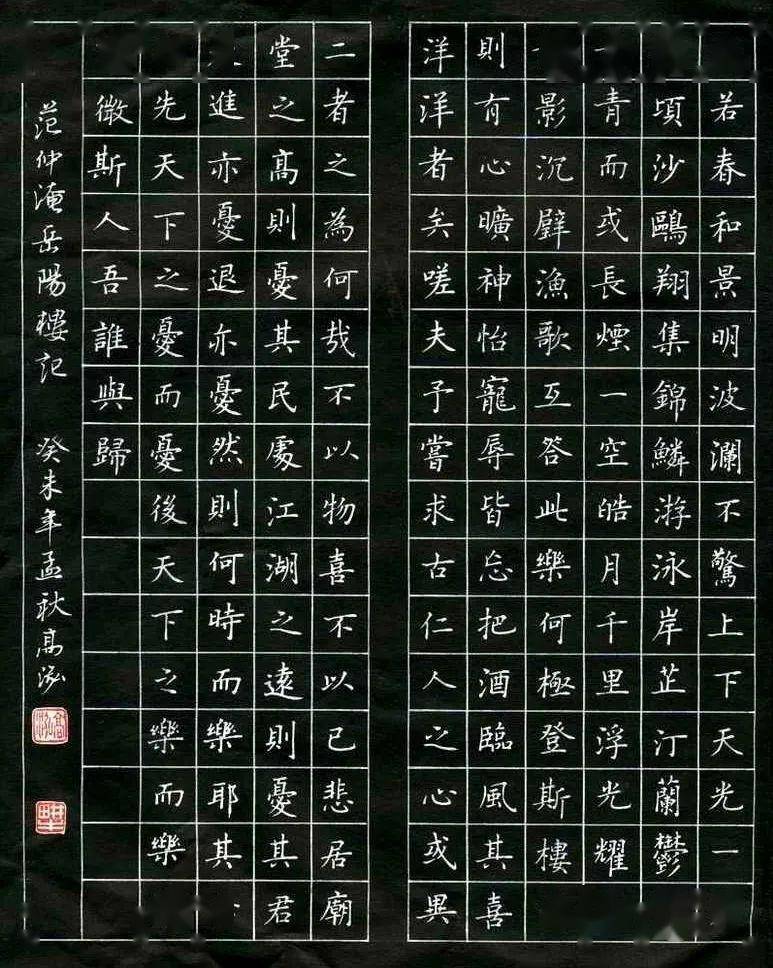 若春和景明波瀾不驚上下天光一
頃沙鷗翔集錦鱗游泳岸芷汀蘭鬱
青而或長煙一空皓月千里浮光耀
影沉璧漁歌互答此樂何極登斯樓
則有心曠神怡寵辱皆忘把酒臨風其喜
洋洋者矣嗟夫予嘗求古仁人之心或異
二者之為何哉不以物喜不以已悲居廟
堂之高則憂其民處江湖之遠則憂其君
進亦憂退亦憂然則何時而樂耶其
先天下之憂而憂後天下之樂而樂
微斯人吾誰與歸
范仲淹岳陽樓記 癸未年孟秋高泓